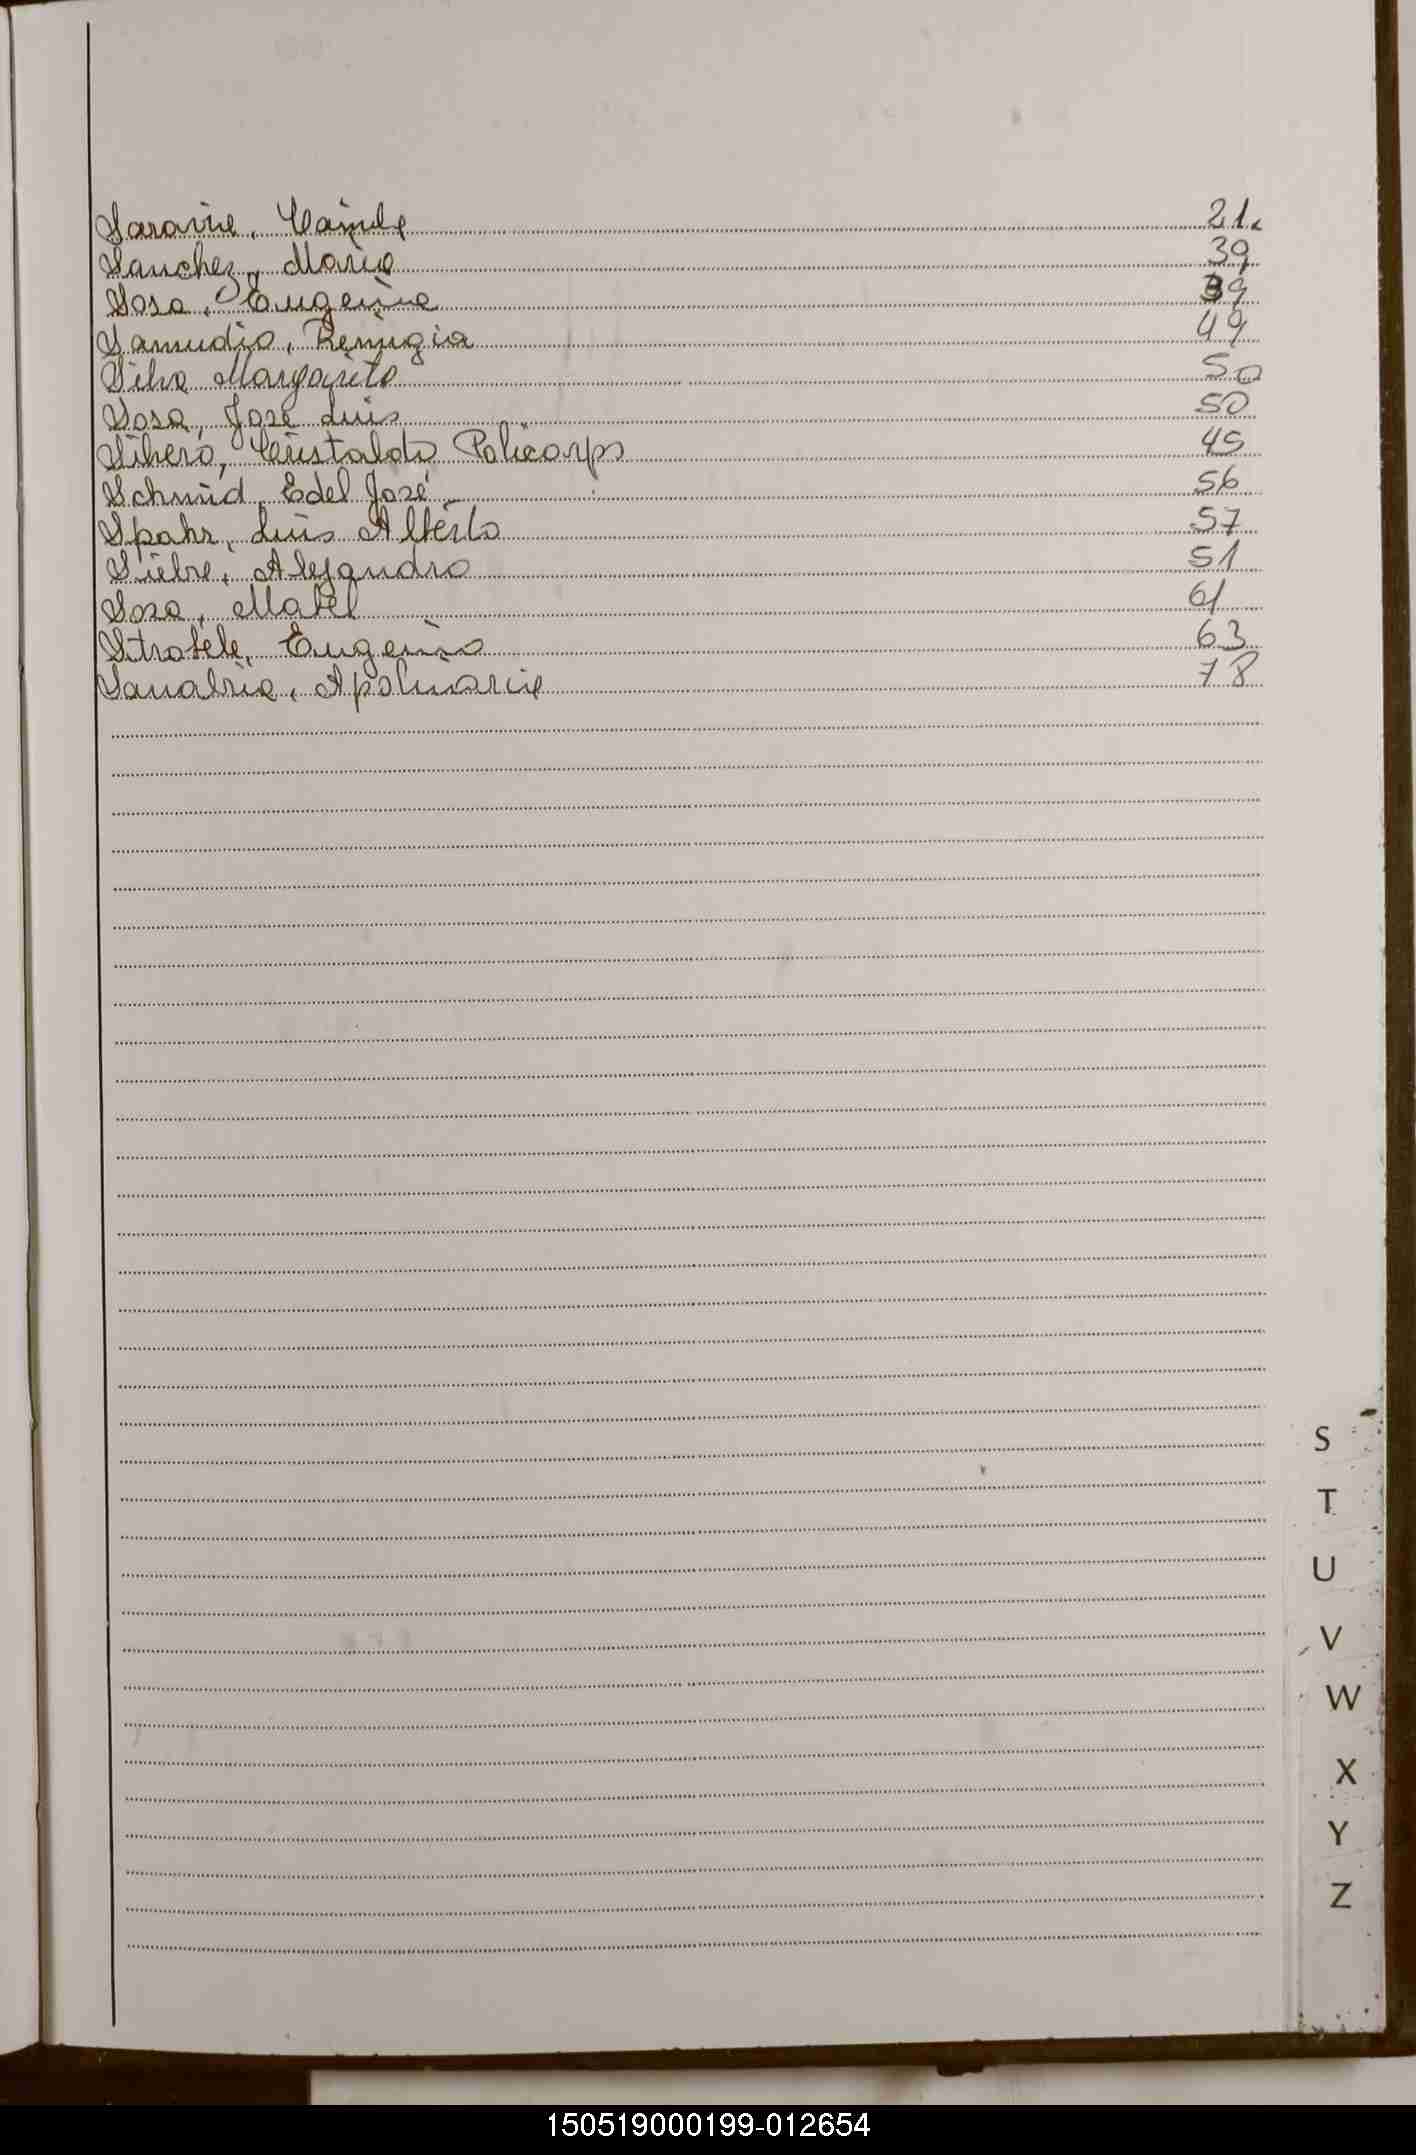 Saravia, Camila 21.
Sanchez, Maria 39
Sosa, Eugenia 39
Samudio, Remigia 49
Silva Margarita 50
Sosa, José Luis 50
Silvero, Cristaldo Policarpo 45
Schmid, Edel José 56
Spahr, Luis Alberto 57
Alejandro 51
Sosa, Mabel 61
Strobele, Eugenio 63
Sanabria, Apolinaria 78
S
T
U
V
W
X
Y
Z
150519000199-012654